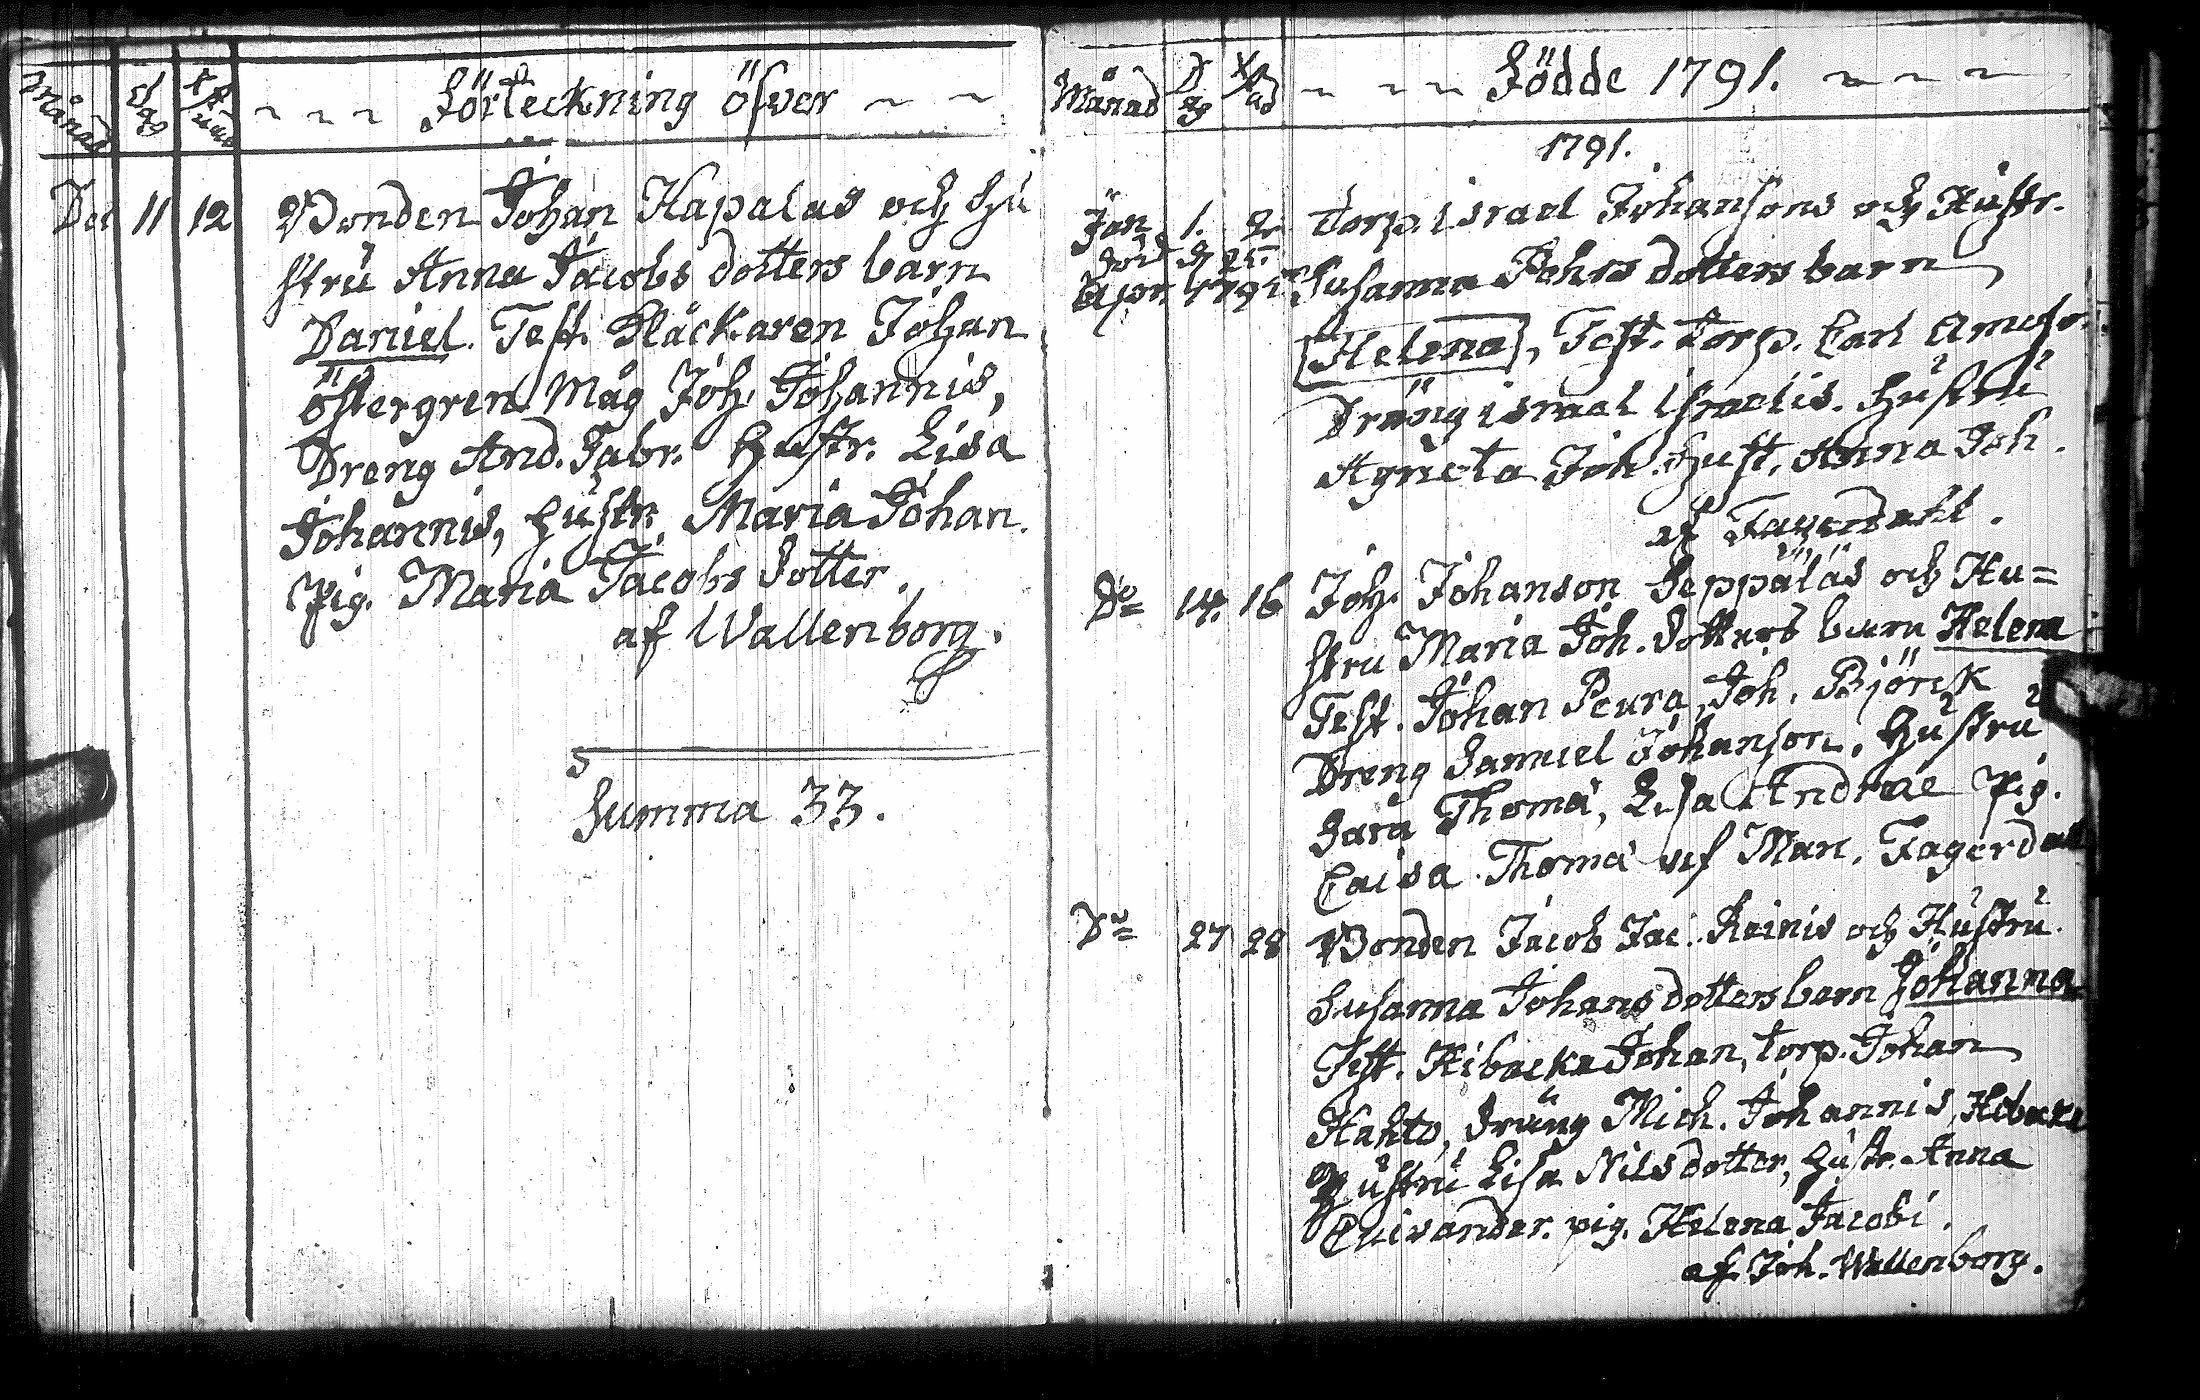 Månad Dag Xstnad ~ ~ ~ Förteckning öfver ~ ~
Dec 11 12 Bonden Johan Hapalas och hu
stru Anna Jacobs dotters barn
Daniel. Test. Kläckaren Johan
Östergren Måg Joh. Johannis,
Dreng And. Gabr. Hustr. Lisa
Johannis, Hustr. Maria Johan.
Pig. Maria Jacobs dotter.
af Wallenborg.
Summa 33.
Månad Dag ~ ~ ~ Födde 1791. ~ ~ ~
1791.
Jan. 1. 2 Torp. israel Johansons och Hustr.
död d 25
Apr. 1791 Susanna Johs dotters barn
Helena, Test. Torp. Carl
Dräng israel israelis. Hustru
Agneta Joh. Hust. Anna Joh.
af Fagerdahl.
Do 14. 16 Joh. Johanson Seppäläs och Hu=
stru Maria Joh. dotters barn Helena
Test. Johan Peura, Joh. Björck
Dreng Samuel Johanson, Hustru
Sara Thomä, Lisa Andreae Pig.
Caisa Thomä af Man. Fagerdahl
Do 27 28 Bonden Jacob Jac. Reinis och Hustru
Susanna Johans dotters barn Johanna
Test. Hibacka Johan, torp. Johan
Hahto, dräng Mich. Johannis, Hibacka
Hustru Lisa Nilsdotter, Hustr. Anna
pig. Helena Jacobi.
af Joh. Wallenborg.